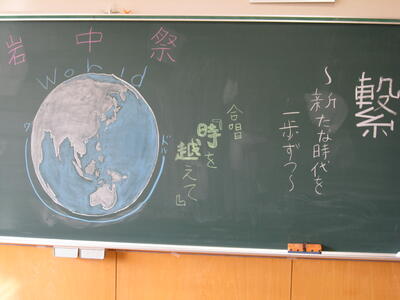 岩中祭
world
ワールド
繋
～新たな時代を
一歩ずつ～
合唱
『時を
越えて』